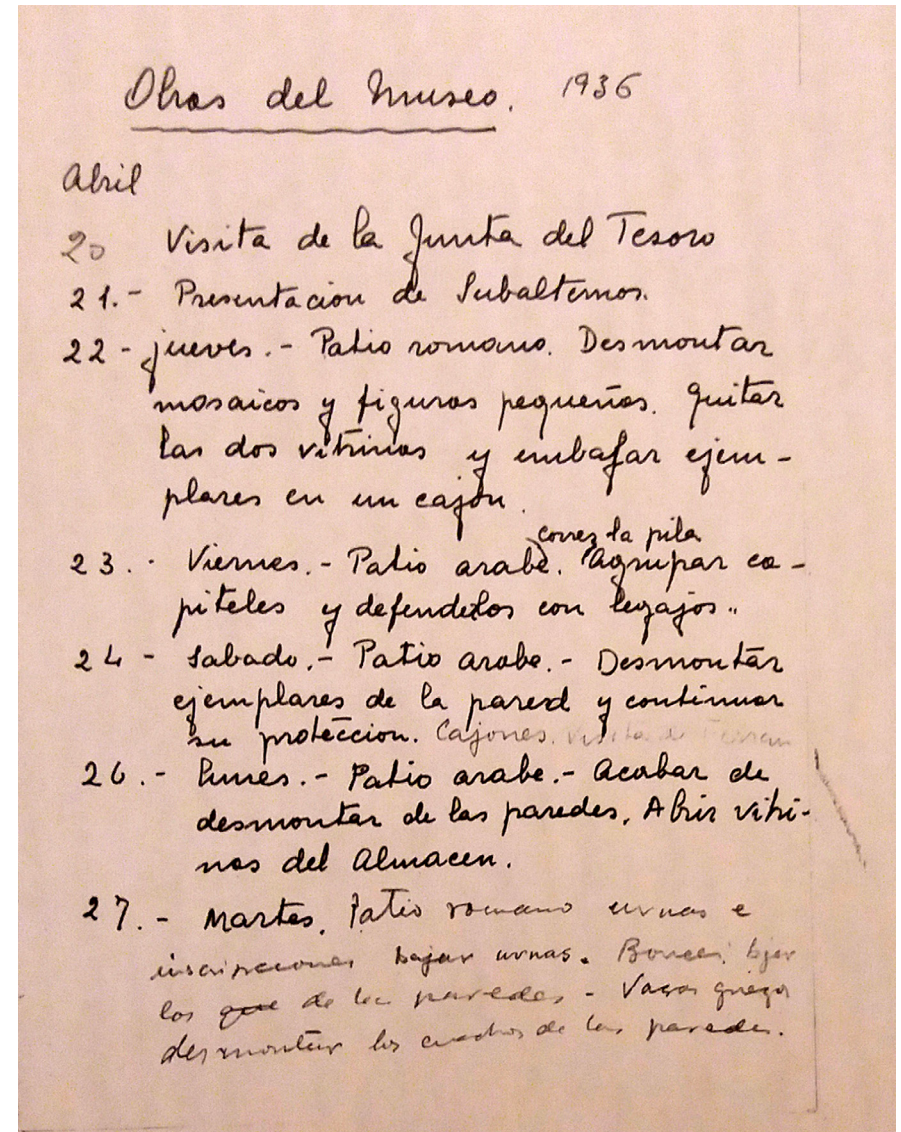 Obras del Museo. 1936
Abril
20 Visita de la Junta del Tesoro
21.- Presentacion de Subalternos.
22 - jueves.- Patio romano. Desmontar
mosaicos y figuras pequeñas. Quitar
las dos vitrinas y embalar ejem-
plares en un cajón.
correr la pila
23.- Viernes.- Patio arabe. Agrupar ca-
piteles y defenderlos con legajos..
24 - Sabado.- Patio arabe.- Desmontar
ejemplares de la pared y continuar
su protección. Cajones. Visita de
26.- lunes.- Patio arabe.- Acabar de
desmontar de las paredes. Abrir vitri-
nas del Almacen.
27.- Martes. Patio romano urnas e
inscripciones bajar urnas. bajar
los que de las paredes - Vasos griegos
desmontar los cuadros de las paredes.